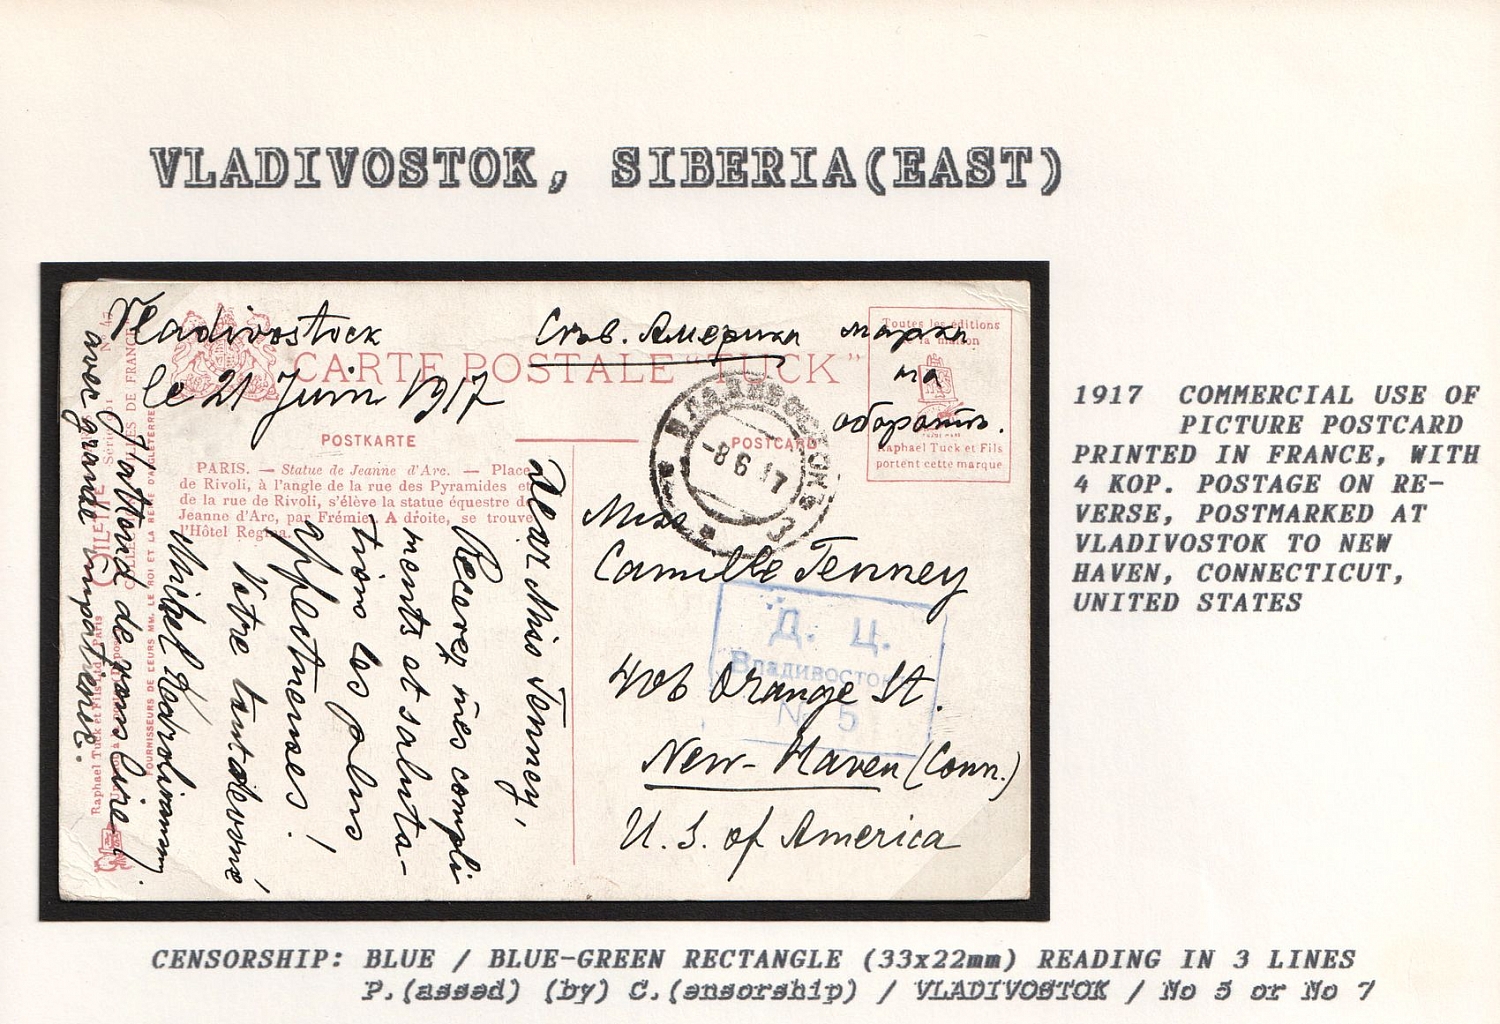 VLADIVOSTOK, SIBERIA(EAST)
Vladivostock
le 21 Juin 1917
Сѣв. Америка
марки
на
оборотѣ.
CARTE POSTALE "TUCK"
POSTKARTE
POSTCARD
Toutes les éditions
de la maison
Raphael Tuck et Fils
portent cette marque
PARIS. — Statue de Jeanne d'Arc. — Place
de Rivoli, à l'angle de la rue des Pyramides et
de la rue de Rivoli, s'élève la statue équestre de
Jeanne d'Arc, par Frémiet. A droite, se trouve
l'Hôtel Regina.
ВЛАДИВОСТОКЪ
-8 6 17
Dear Miss Tenney,
Recevez mes compli
ments et saluta-
tions les plus
affectueuses!
Votre tout dévoué
Michel
J'attend de vous lire!
avec grande impatience.
Raphael Tuck et Fils Ltd Paris
FOURNISSEURS DE LEURS MM. LE ROI ET LA REINE D'ANGLETERRE
Miss
Camille Tenney
406 Orange St.
New-Haven (Conn.)
U. S. of America
Д. Ц.
Владивосток
№ 5
1917 COMMERCIAL USE OF
PICTURE POSTCARD
PRINTED IN FRANCE, WITH
4 KOP. POSTAGE ON RE-
VERSE, POSTMARKED AT
VLADIVOSTOK TO NEW
HAVEN, CONNECTICUT,
UNITED STATES
CENSORSHIP: BLUE / BLUE-GREEN RECTANGLE (33x22mm) READING IN 3 LINES
P.(assed) (by) C.(ensorship) / VLADIVOSTOK / No 5 or No 7